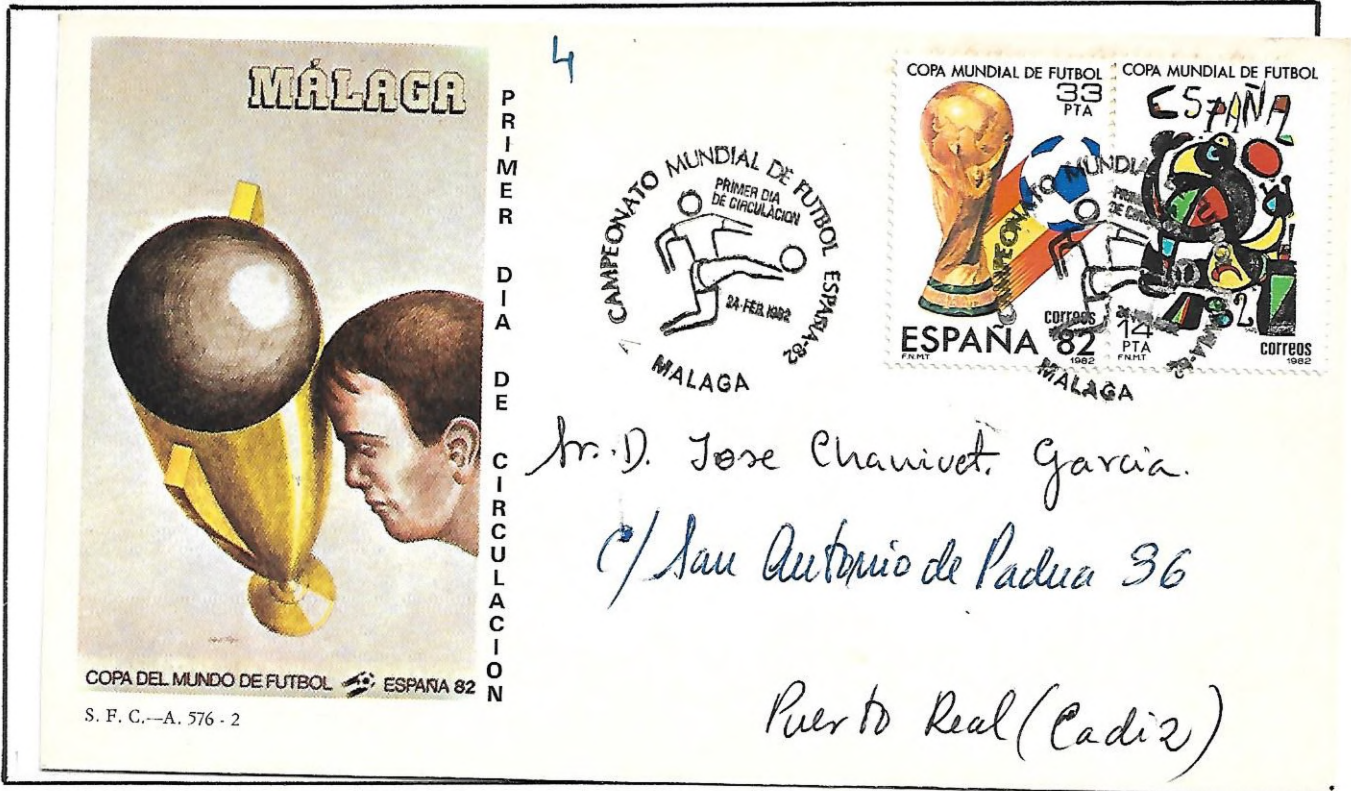 MÁLAGA
PRIMER DIA DE CIRCULACION
COPA DEL MUNDO DE FUTBOL ESPAÑA 82
S. F. C.—A. 576 - 2
4
CAMPEONATO MUNDIAL DE FUTBOL ESPAÑA-82
PRIMER DIA
DE CIRCULACION
24 FEB. 1982
MALAGA
COPA MUNDIAL DE FUTBOL
33
PTA
correos
ESPAÑA 82
F.N.M.T
1982
COPA MUNDIAL DE FUTBOL
ESPAÑA
82
14
PTA
F.N.M.T
correos
1982
CAMPEONATO MUNDIAL ESPAÑA-82
MALAGA
Sr. D. Jose Chanivet. Garcia.
C/ San Antonio de Padua 36
Puerto Real (Cadiz)